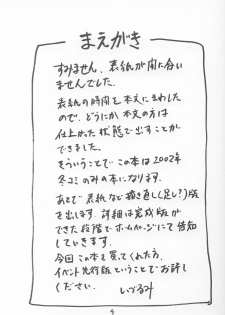 まえがき
すみません、表紙が間に合い
ませんでした。
表紙の時間を本文にまわした
ので、どうにか本文の方は
仕上がった状態で出すことが
できました。
そういうことでこの本は2002年
冬コミのみの本になります。
あとで表紙など描き直し(足し?)版
を出します。詳細は完成版が
できた段階でホームページにて告知
していきます。
今回この本を買ってくれた方、
イベント先行版ということでお許し
ください。
いづるみ
4